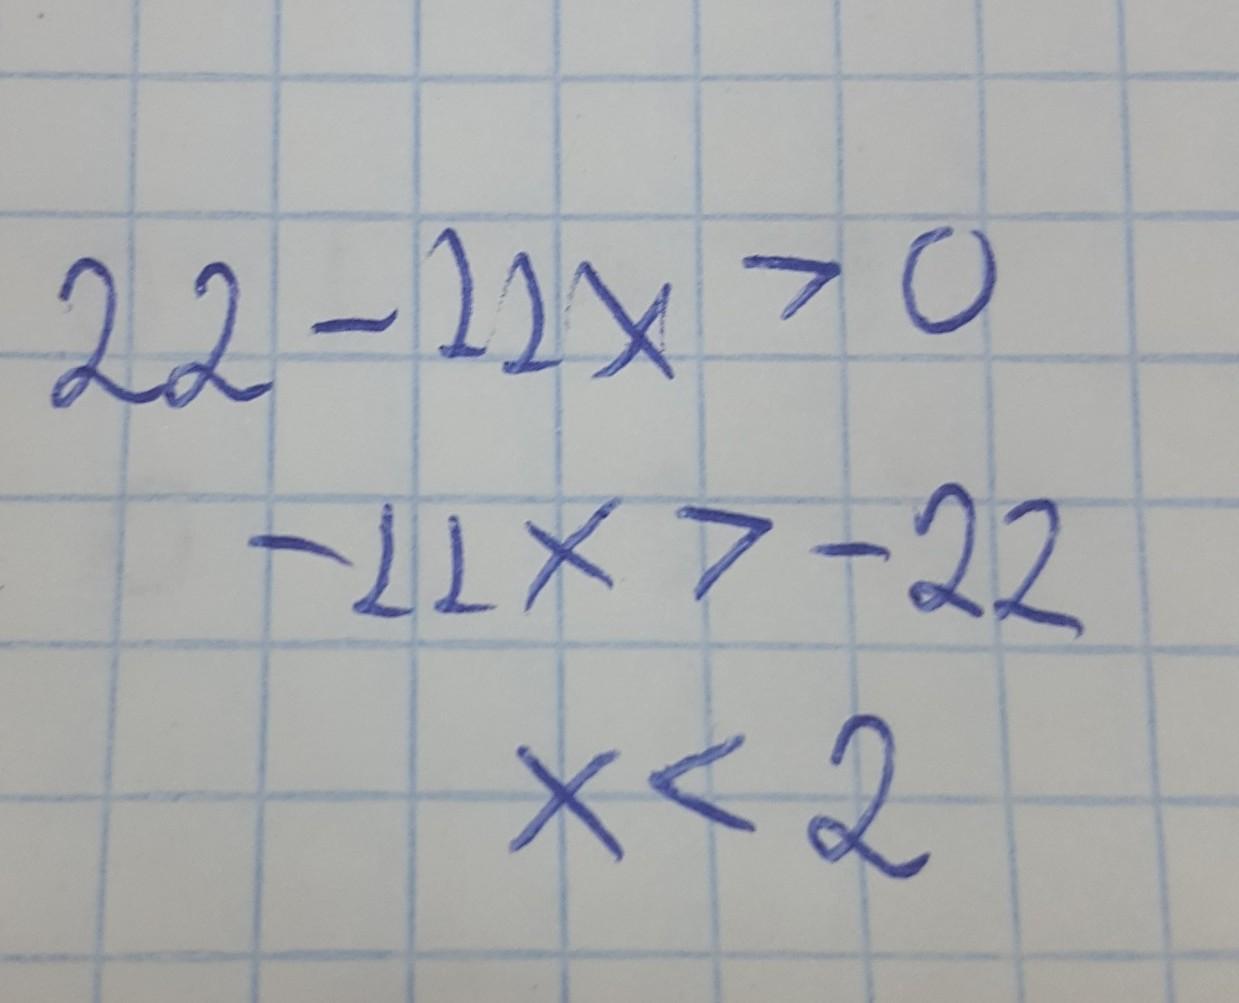 22 - 11x > 0
-11x > -22
x < 2